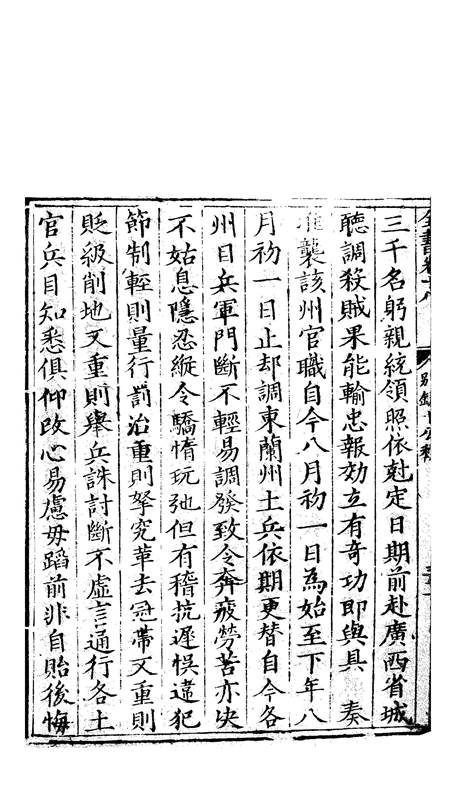 全書卷十八
別錄十公移
三千名躬親統領照依尅定日期前赴廣西省城
聽調殺賊果能輸忠報効立有奇功即與具 奏
准襲該州官職自今八月初一日為始至下年八
月初一日止却調東蘭州土兵依期更替自今各
州目兵軍門斷不輕易調發致令奔疲勞苦亦決
不姑息隱忍縱令驕惰玩弛但有稽抗遲悞違犯
節制輕則量行罰治重則拏究革去冠帶又重則
貶級削地又重則舉兵誅討斷不虛言通行各土
官兵目知悉俱仰改心易慮毋蹈前非自貽後悔